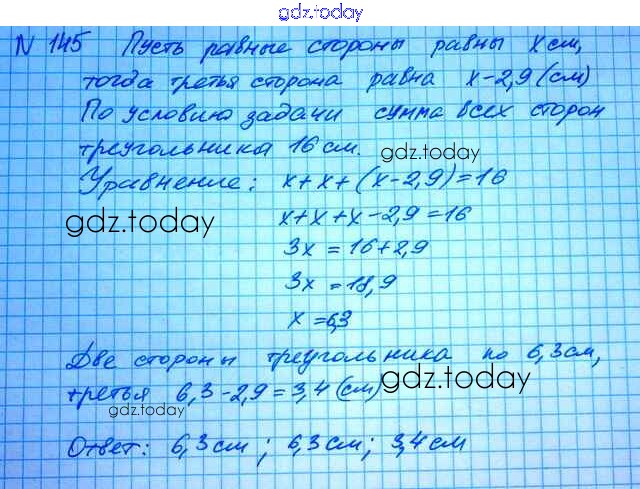 gdz.today
N 145 Пусть равные стороны равны x см,
тогда третья сторона равна x-2,9 (см)
По условию задачи сумма всех сторон
треугольника 16 см.
gdz.today
Уравнение: x+x+(x-2,9)=16
gdz.today
x+x+x-2,9=16
3x = 16+2,9
3x = 18,9
x = 6,3
Две стороны треугольника по 6,3 см,
третья 6,3-2,9=3,4 (см)
gdz.today
gdz.today
Ответ: 6,3 см; 6,3 см; 3,4 см